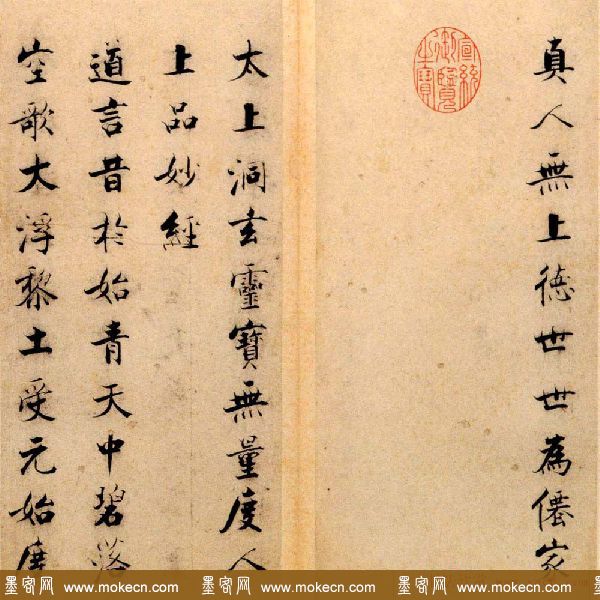 真人無上德世世為僊家
宣統御覽之寶
太上洞玄靈寶無量度人
上品妙經
道言昔於始青天中碧落
空歌大浮黎土受元始度
墨客网 www.mokecn.com 墨客网 www.mokecn.com 墨客网 www.mokecn.com